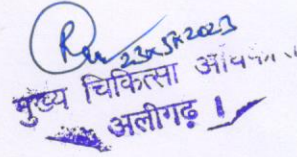 23/5/2023
मुख्य चिकित्सा
अलीगढ़ ।